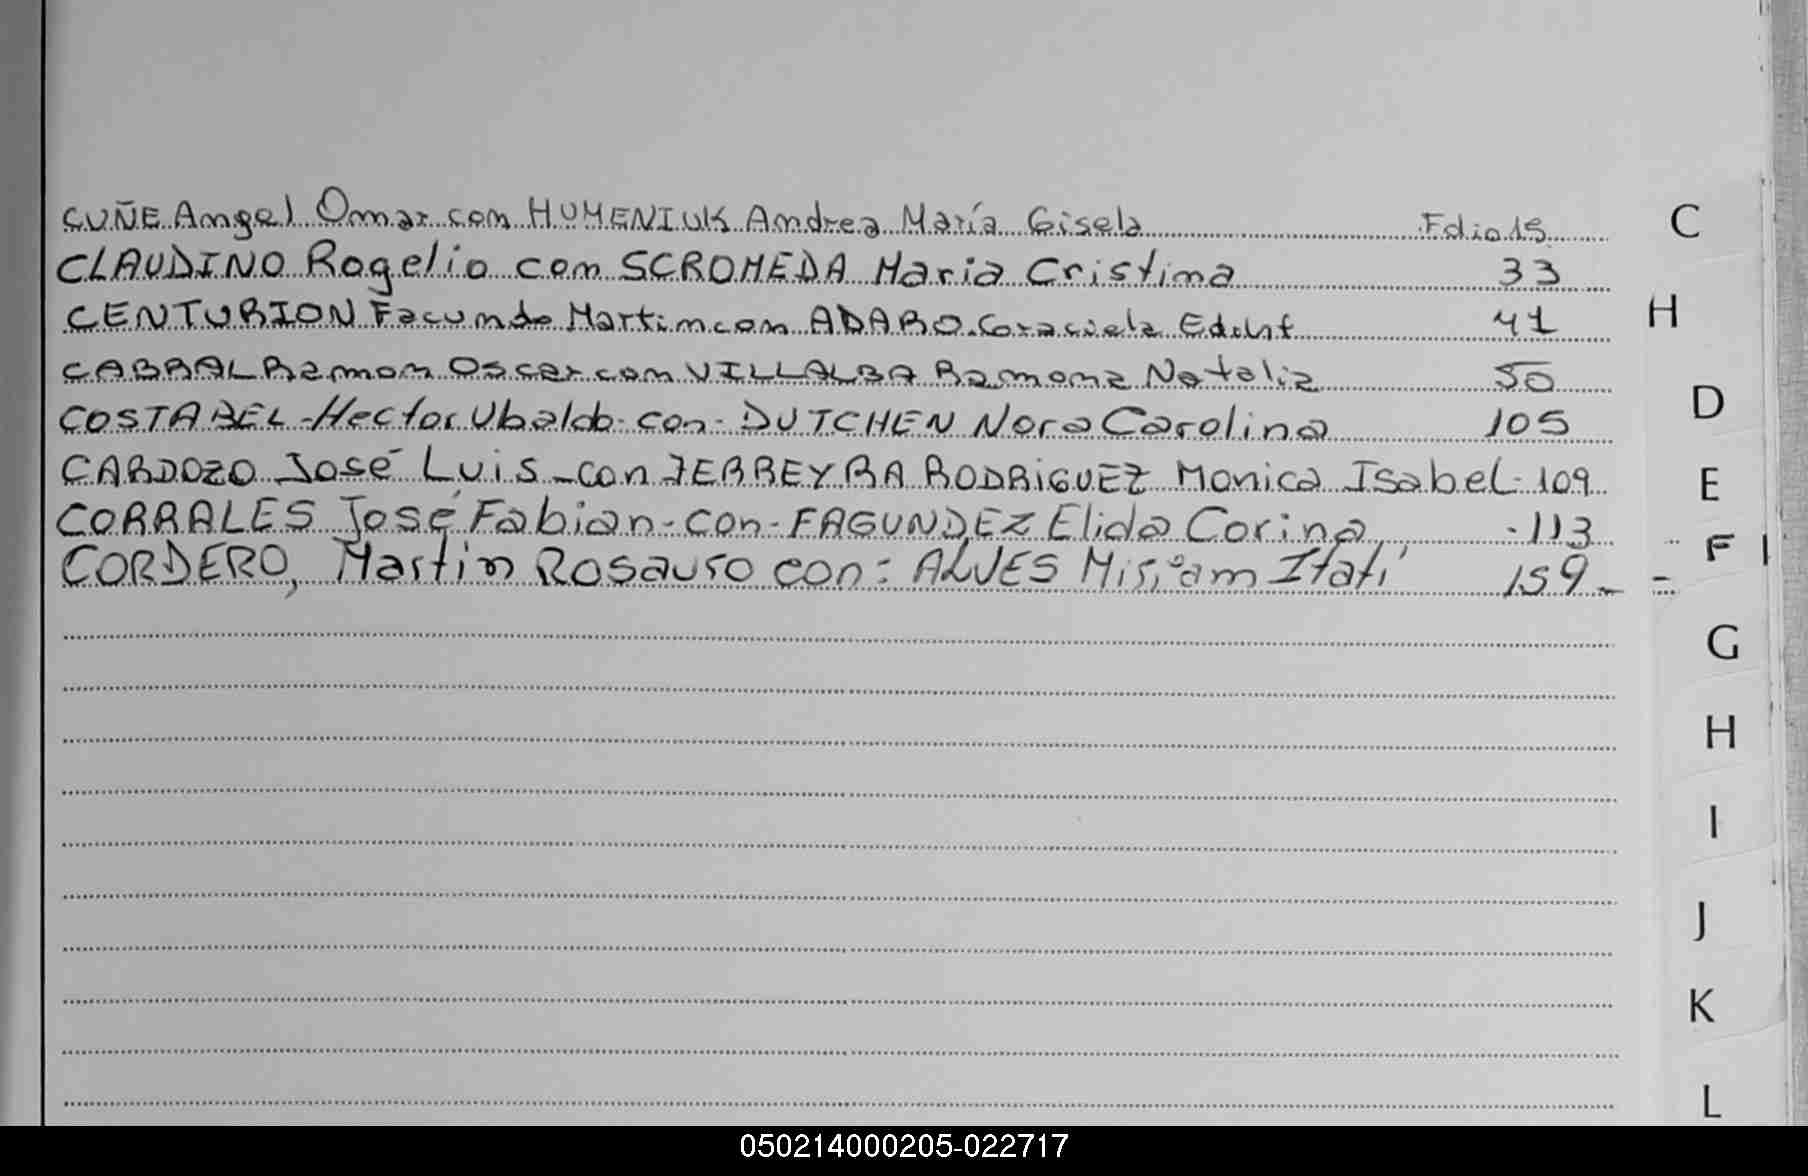 CUÑE Angel Omar con HUMENIUK Andrea María Gisela Folio 15
CLAUDINO Rogelio con SCROMEDA Maria Cristina 33
CENTURION Facundo Martin con ADARO Graciela Edith 41
CABRAL Ramon Oscar con VILLALBA Ramona Natalia 50
COSTABEL - Hector Ubaldo - con - DUTCHEN Nora Carolina 105
CARDOZO José Luis - con FERREYRA RODRiGUEZ Monica Isabel - 109
CORRALES José Fabian - con - FAGUNDEZ Elida Corina - 113
CORDERO, Martin Rosauro con: ALVES Miriam Itatí 159 -
C
H
D
E
F
G
H
I
J
K
L
050214000205-022717